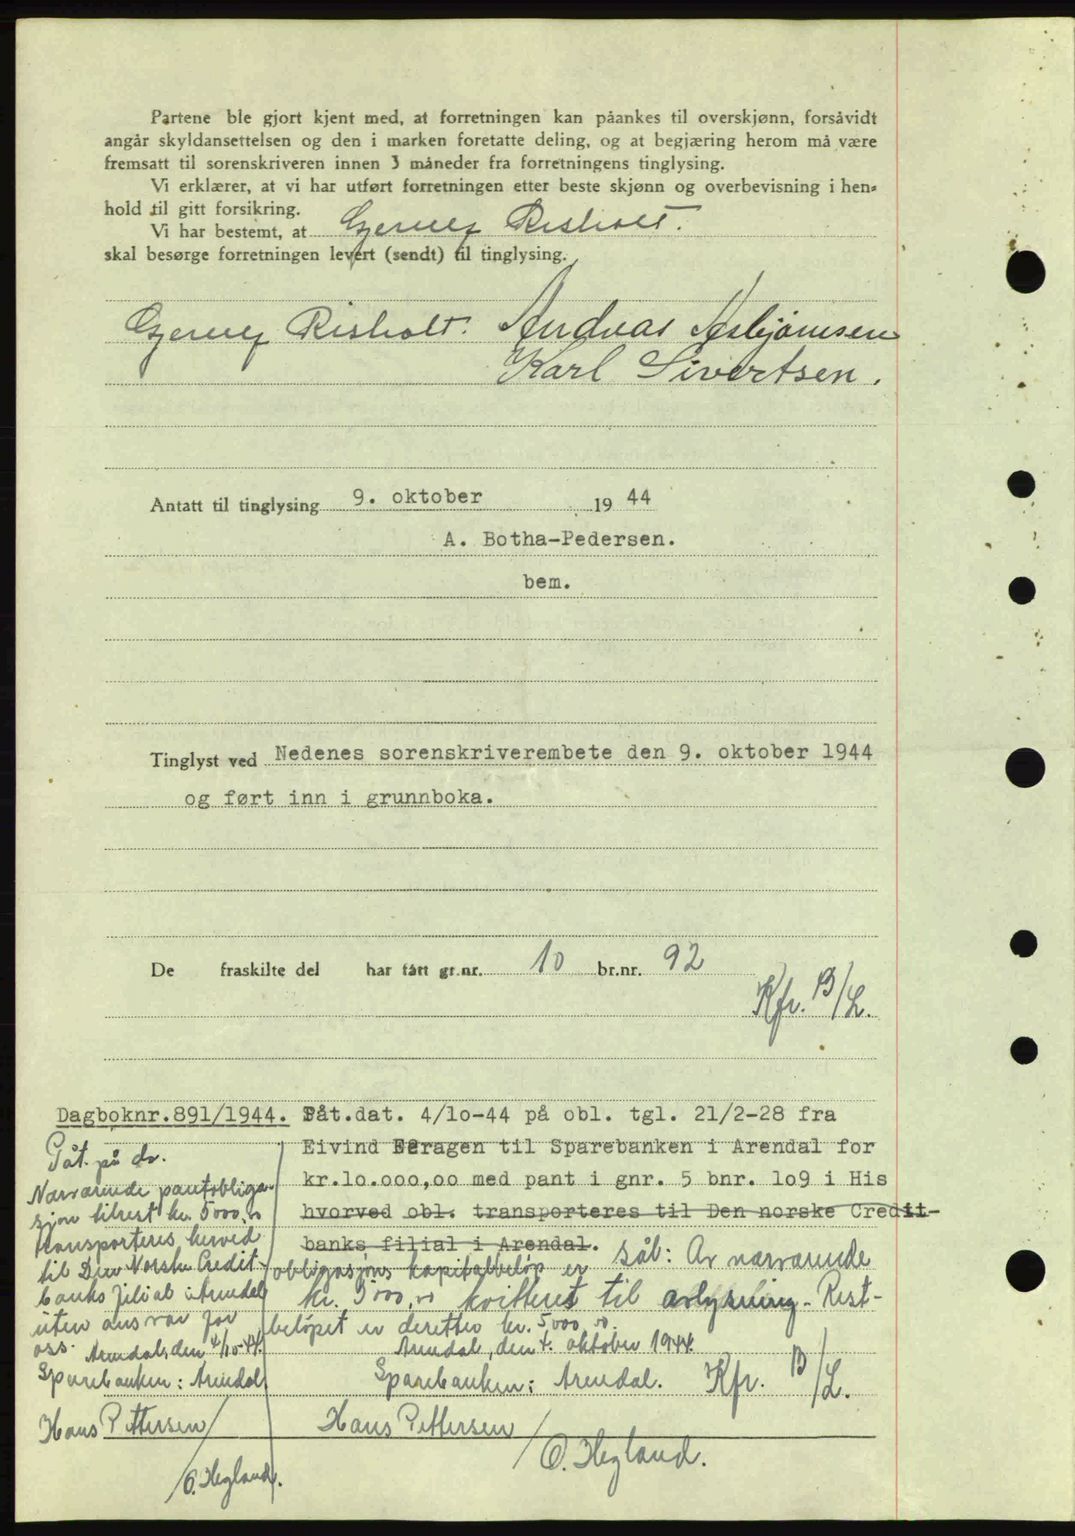 Partene ble gjort kjent med, at forretningen kan påankes til overskjønn, forsåvidt
angår skyldansettelsen og den i marken foretatte deling, og at begjæring herom må være
fremsatt til sorenskriveren innen 3 måneder fra forretningens tinglysing.
Vi erklærer, at vi har utført forretningen etter beste skjønn og overbevisning i hen-
hold til gitt forsikring.
Vi har bestemt, at Risholt.
skal besørge forretningen levert (sendt) til tinglysing.
Risholt. Andreas Asbjørnsen
Karl Sivertsen.
Antatt til tinglysing 9. oktober 19 44
A. Botha-Pedersen.
bem.
Tinglyst ved Nedenes sorenskriverembete den 9. oktober 1944
og ført inn i grunnboka.
De fraskilte del har fått gr.nr. 10 br.nr. 92
Kfr. B/L.
Dagboknr.891/1944. Påt.dat. 4/10-44 på obl. tgl. 21/2-28 fra
Eivind Feragen til Sparebanken i Arendal for
kr.10.000,00 med pant i gnr. 5 bnr. 109 i His
hvorved obl. transporteres til Den norske Credit-
banks filial i Arendal. sål: Av nærværende
obligasjons kapitalbeløp er
kr. 5000,00 kvittert til avlysning. Rest-
beløpet er deretter kr. 5000,00.
Arendal, den 4. oktober 1944.
Sparebanken: Arendal. Kfr. B/L.
Hans Pettersen
/O. Hegland.
Påt. på do.
Nærværende pantobliga-
sjon tilrest kr. 5000,00
transporteres herved
til Den Norske Credit-
banks filial i Arendal
uten ansvar for
oss. Arendal, den 4/10-44.
Sparebanken: Arendal
Hans Pettersen
/O. Hegland.